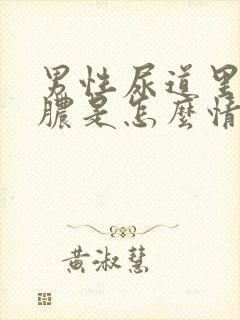 男性尿道里
膿是怎麼情
黃淑慧